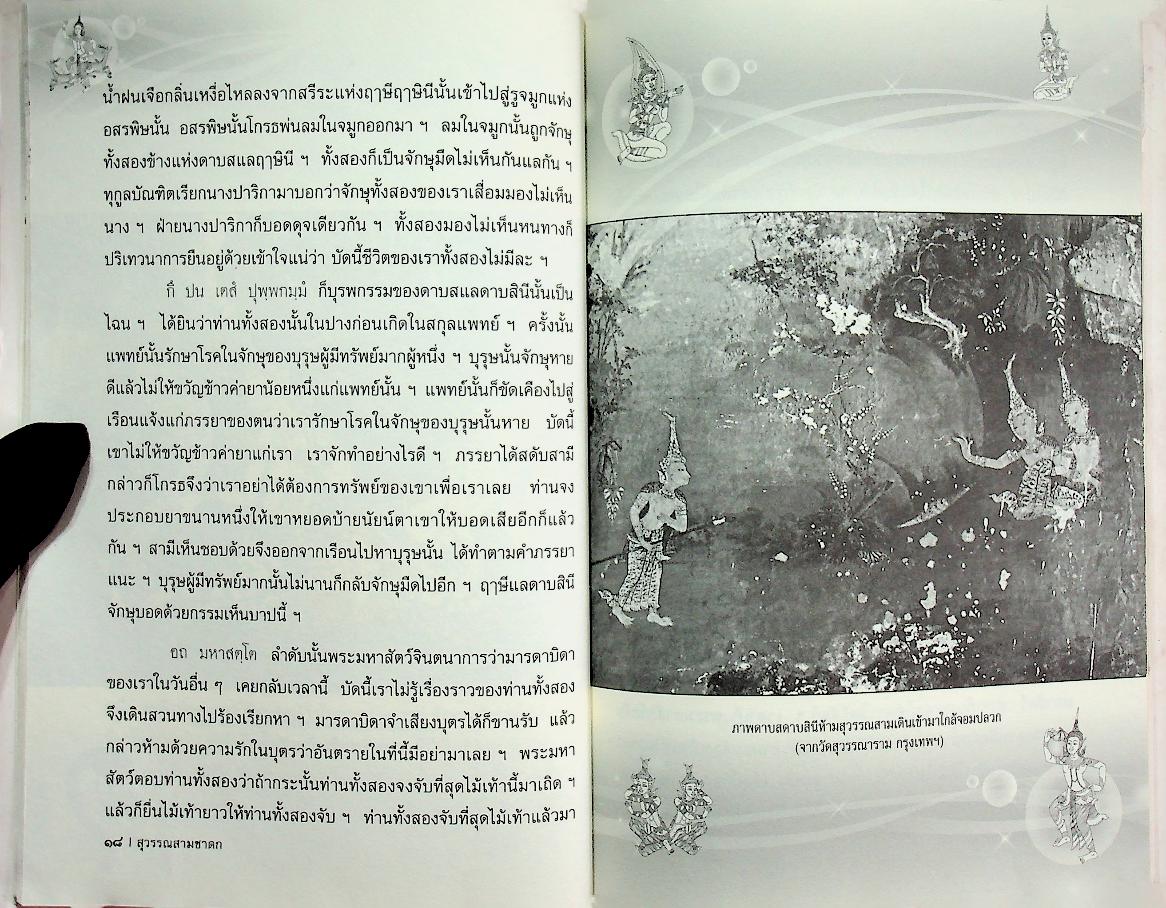 น้ำฝนเจือกลิ่นเหงื่อไหลลงจากสรีระแห่งฤๅษีฤๅษินีนั้นเข้าไปสู่รูจมูกแห่ง
อสรพิษนั้น อสรพิษนั้นโกรธพ่นลมในจมูกออกมา ฯ ลมในจมูกนั้นถูกจักษุ
ทั้งสองข้างแห่งดาบสแลฤๅษินี ฯ ทั้งสองก็เป็นจักษุมืดไม่เห็นกันแลกัน ฯ
ทุกูลบัณฑิตเรียกนางปาริกามาบอกว่าจักษุทั้งสองของเราเสื่อมมองไม่เห็น
นาง ฯ ฝ่ายนางปาริกาก็บอดดุจเดียวกัน ฯ ทั้งสองมองไม่เห็นหนทางก็
ปริเทวนาการยืนอยู่ด้วยเข้าใจแน่ว่า บัดนี้ชีวิตของเราทั้งสองไม่มีละ ฯ
กึ ปน เตสํ ปุพฺพกมฺมํ ก็บุรพกรรมของดาบสแลดาบสินีนั้นเป็น
ไฉน ฯ ได้ยินว่าท่านทั้งสองนั้นในปางก่อนเกิดในสกุลแพทย์ ฯ ครั้งนั้น
แพทย์นั้นรักษาโรคในจักษุของบุรุษผู้มีทรัพย์มากผู้หนึ่ง ฯ บุรุษนั้นจักษุหาย
ดีแล้วไม่ให้ขวัญข้าวค่ายาน้อยหนึ่งแก่แพทย์นั้น ฯ แพทย์นั้นก็ขัดเคืองไปสู่
เรือนแจ้งแก่ภรรยาของตนว่าเรารักษาโรคในจักษุของบุรุษนั้นหาย บัดนี้
เขาไม่ให้ขวัญข้าวค่ายาแก่เรา เราจักทำอย่างไรดี ฯ ภรรยาได้สดับสามี
กล่าวก็โกรธจึงว่าเราอย่าได้ต้องการทรัพย์ของเขาเพื่อเราเลย ท่านจง
ประกอบยาขนานหนึ่งให้เขาหยอดป้ายนัยน์ตาเขาให้บอดเสียอีกก็แล้ว
กัน ฯ สามีเห็นชอบด้วยจึงออกจากเรือนไปหาบุรุษนั้น ได้ทำตามคำภรรยา
แนะ ฯ บุรุษผู้มีทรัพย์มากนั้นไม่นานก็กลับจักษุมืดไปอีก ฯ ฤๅษีแลดาบสินี
จักษุบอดด้วยกรรมเห็นบาปนี้ ฯ
อถ มหาสตฺโต ลำดับนั้นพระมหาสัตว์จินตนาการว่ามารดาบิดา
ของเราในวันอื่น ๆ เคยกลับเวลานี้ บัดนี้เราไม่รู้เรื่องราวของท่านทั้งสอง
จึงเดินสวนทางไปร้องเรียกหา ฯ มารดาบิดาจำเสียงบุตรได้ก็ขานรับ แล้ว
กล่าวห้ามด้วยความรักในบุตรว่าอันตรายในที่นี้มีอย่ามาเลย ฯ พระมหา
สัตว์ตอบท่านทั้งสองว่าถ้ากระนั้นท่านทั้งสองจงจับที่สุดไม้เท้านี้มาเถิด ฯ
แล้วก็ยื่นไม้เท้ายาวให้ท่านทั้งสองจับ ฯ ท่านทั้งสองจับที่สุดไม้เท้าแล้วมา
๑๘ | สุวรรณสามชาดก
ภาพดาบสดาบสินีห้ามสุวรรณสามเดินเข้ามาใกล้จอมปลวก
(จากวัดสุวรรณาราม กรุงเทพฯ)